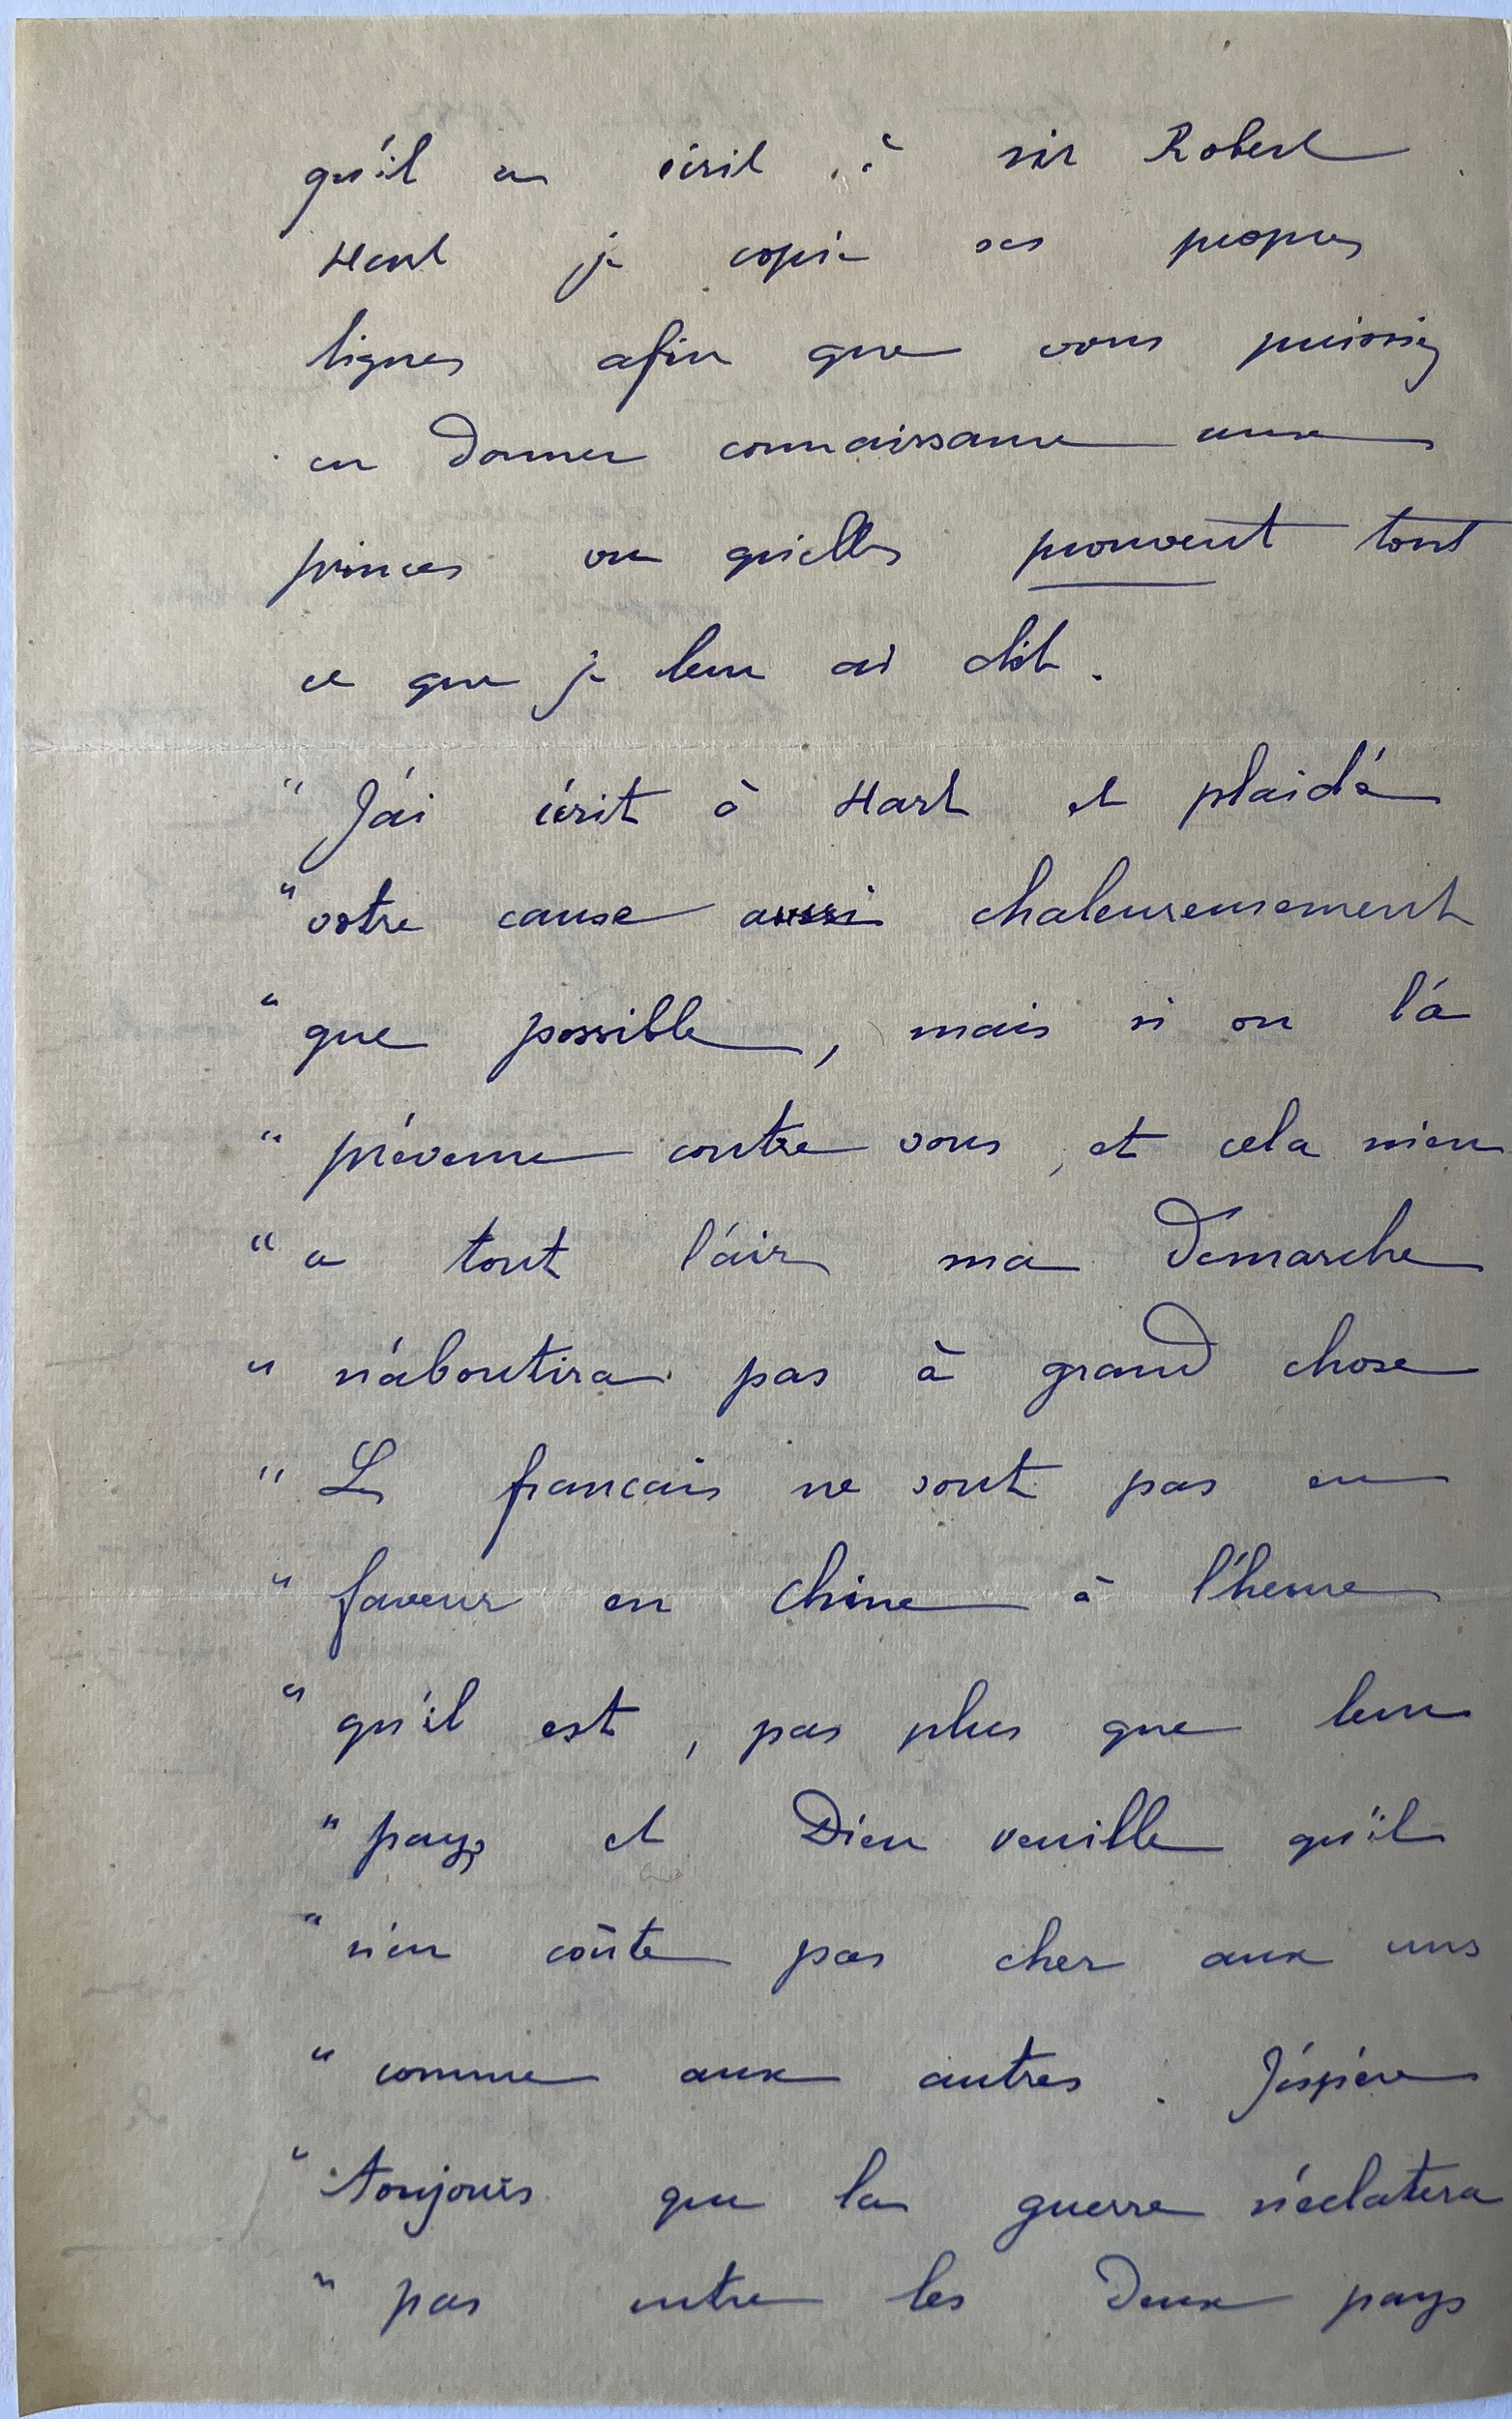 qu'il a écrit à sir Robert
Hart je copie ses propres
lignes afin que vous puissiez
en donner connaissance aux
princes car qu'elles prouvent tout
ce que je leur ai dit.
" J'ai écrit à Hart et plaidé
" votre cause aussi chaleureusement
" que possible, mais si on l'a
" prévenu contre vous, et cela m'en
" a tout l'air ma démarche
" n'aboutira pas à grand chose
" Les francais ne sont pas en
" faveur en Chine à l'heure
" qu'il est, pas plus que leur
" pays et Dieu veuille qu'il
" n'en coûte pas cher aux uns
" comme aux autres. J'éspère
" toujours que la guerre n'eclatera
" pas entre les deux pays